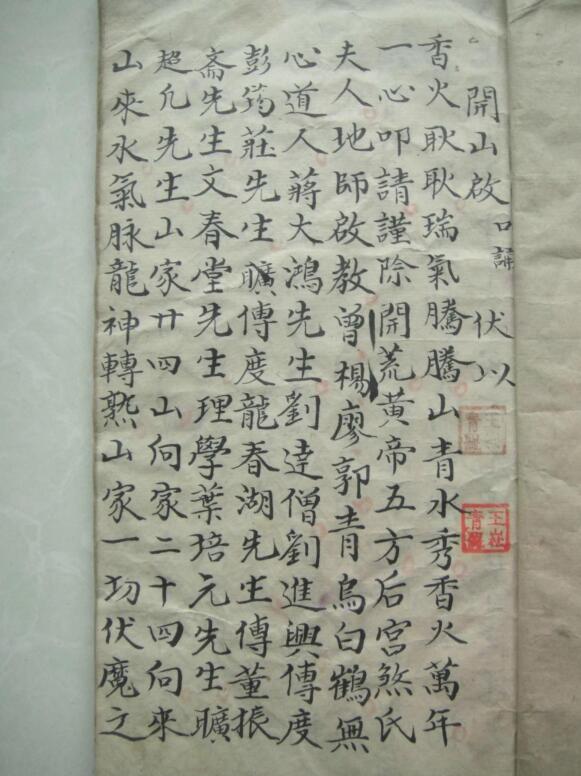 開山啟 口誦 伏以
香火耿耿瑞氣騰騰山青水秀香火萬年
一心叩請謹除開荒黃帝五方后宮煞氏
夫人地師啟教曾楊廖郭青烏白鶴無
心道人蔣大鴻先生劉達僧劉進興傳度
彭筠莊先生曠傳度龍春湖先生傳董振
斋先生文春堂先生理學葉培元先生曠
超凡先生山家廿四山向家二十四向來
山來水氣脉龍神轉煞山家一切伏魔之